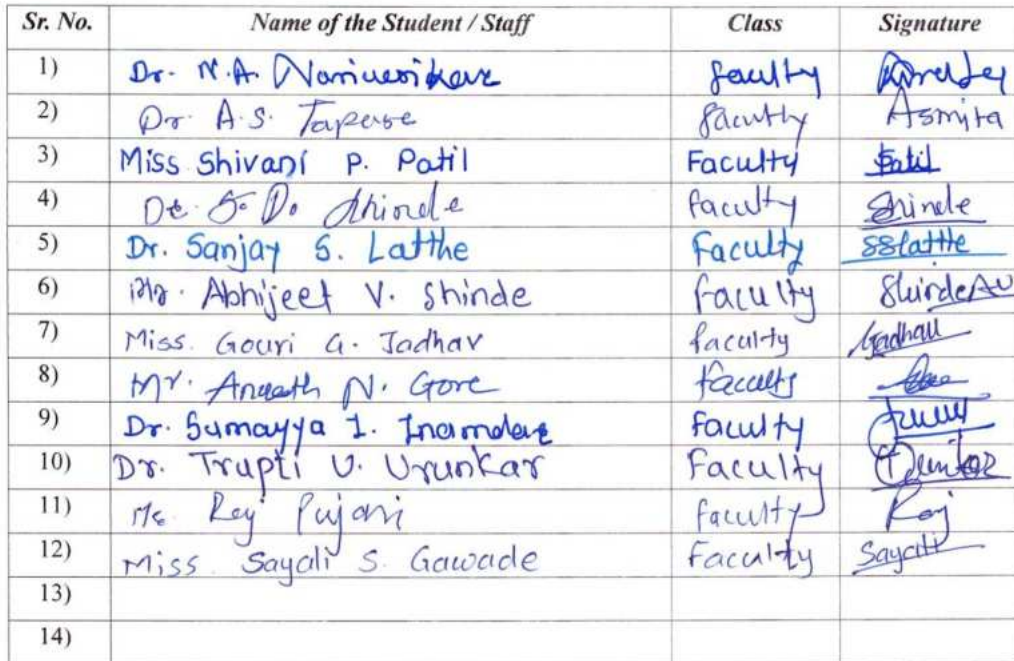 Sr. No. Name of the Student / Staff Class Signature
1) Dr. N.A. faculty
2) Dr. A.S. Tapase faculty Asmita
3) Miss Shivani P. Patil Faculty Patil
4) Dr. S. D. Shinde faculty Shinde
5) Dr. Sanjay S. Latthe Faculty SSLatthe
6) Mr. Abhijeet V. Shinde faculty ShindeAV
7) Miss. Gouri G. Jadhav faculty Jadhav
8) Mr. N. Gore faculty
9) Dr. Sumayya I. Inamdar Faculty
10) Dr. Trupti U. Urunkar Faculty
11) Raj Pujari faculty Raj
12) Miss. Sayali S. Gawade Faculty Sayali
13)
14)